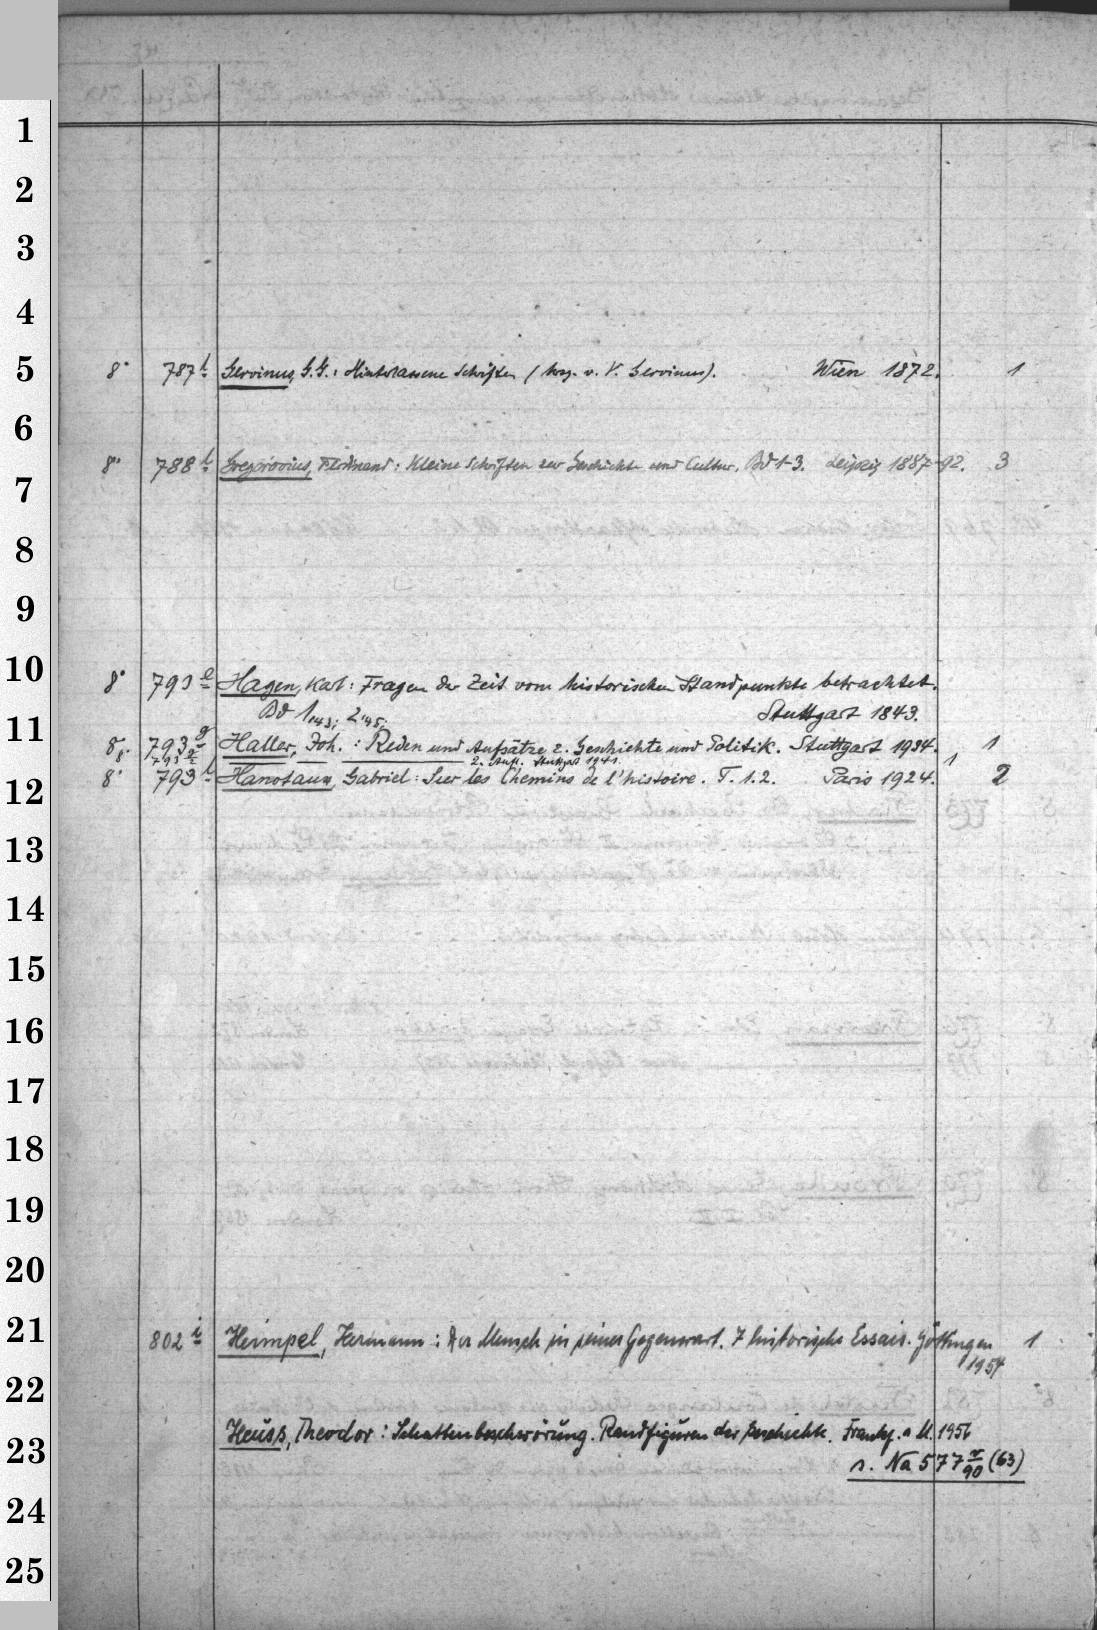 1
2
3
4
8° 787 Gervinus, G. G.: Hinterlassene Schriften (hrsg. v. V. Gervinus). Wien 1872. 1
5
6
8° 788 Gregorovius, Ferdinand: Kleine Schriften zur Geschichte und Cultur. Bd 1-3. Leipzig 1887-92. 3
7
8
9
10
8° 793 e Hagen, Karl: Fragen der Zeit vom historischen Standpunkte betrachtet.
Bd 1,1843; 2,'45; Stuttgart 1843.
11
8° 793 g Haller, Joh.: Reden und Aufsätze z. Geschichte und Politik. Stuttgart 1934. 1
793 2. Aufl. Stuttgart 1941. 1
8° 793 Hanotaux, Gabriel: Sur les Chemins de l'histoire. T. 1.2. Paris 1924. 2
12
13
14
15
16
17
18
19
20
21
802 i Heimpel, Hermann: Der Mensch in seiner Gegenwart. 7 historische Essais. Göttingen 1
1954
22
Heuss, Theodor: Schattenbeschwörung. Randfiguren der Geschichte. Frankf. a M. 1956
23
s. Na 577 r/90 (63)
24
25